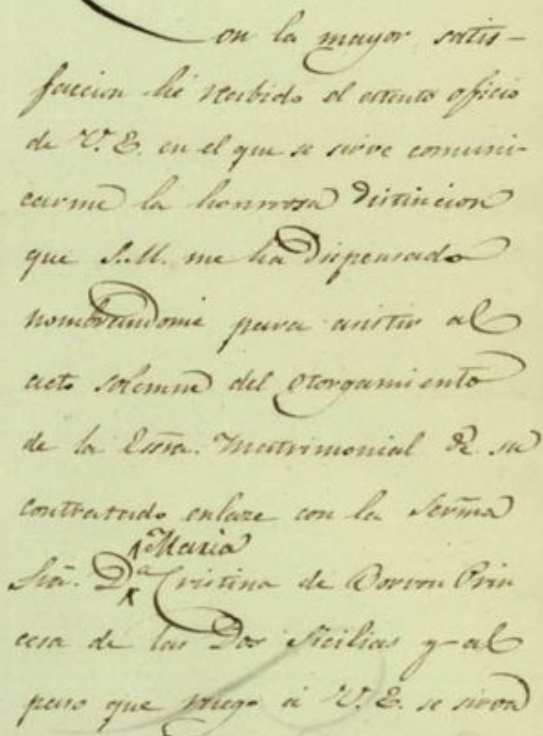 Con la mayor satis-
faccion hé recibido el atento oficio
de V. E. en el que se sirve comuni-
carme la honrrosa distincion
que S. M. me ha dispensado
nombrandome para asistir al
acto solemne del otorgamiento
de la Essra. Matrimonial de su
contratado enlace con la Serma
Maria
Sra. Da. Cristina de Borvon Prin
cesa de las Dos Sicilias y al
paso que ruego á V. E. se sirva